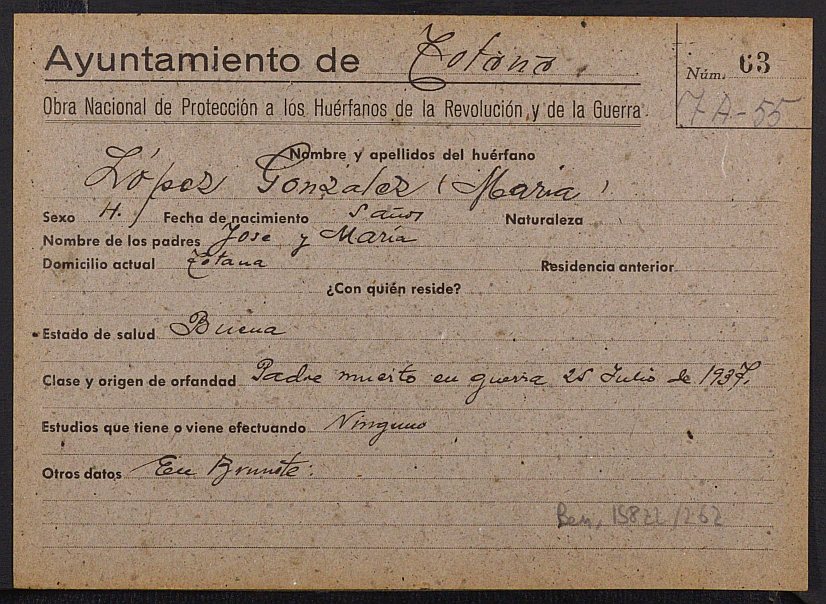 Ayuntamiento de Totana.
Núm. 63
7A-55
Obra Nacional de Protección a los Huérfanos de la Revolución y de la Guerra
Nombre y apellidos del huérfano
López González (María)
Sexo H. Fecha de nacimiento 5 años Naturaleza
Nombre de los padres Jose y María
Domicilio actual Totana Residencia anterior
¿Con quién reside?
Estado de salud Buena
Clase y origen de orfandad Padre muerto en guerra 25 Julio de 1937.
Estudios que tiene o viene efectuando Ninguno
Otros datos En Brunete.
Ben, 15822/262